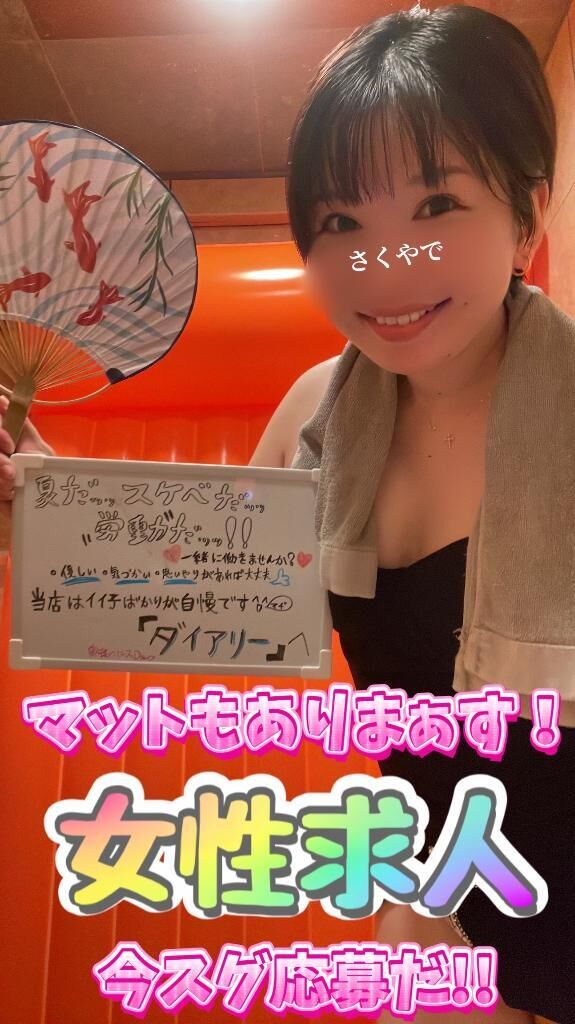 さくやで
夏だッッ スケベだッッ
労働がだッッ!!
一緒に働きませんか?
優しい 気づかい 思いやりがあれば大丈夫
当店はイイ子ばかりが自慢です
「ダイアリー」へ
マットもありまぁす!
女性求人
今スグ応募だ!!